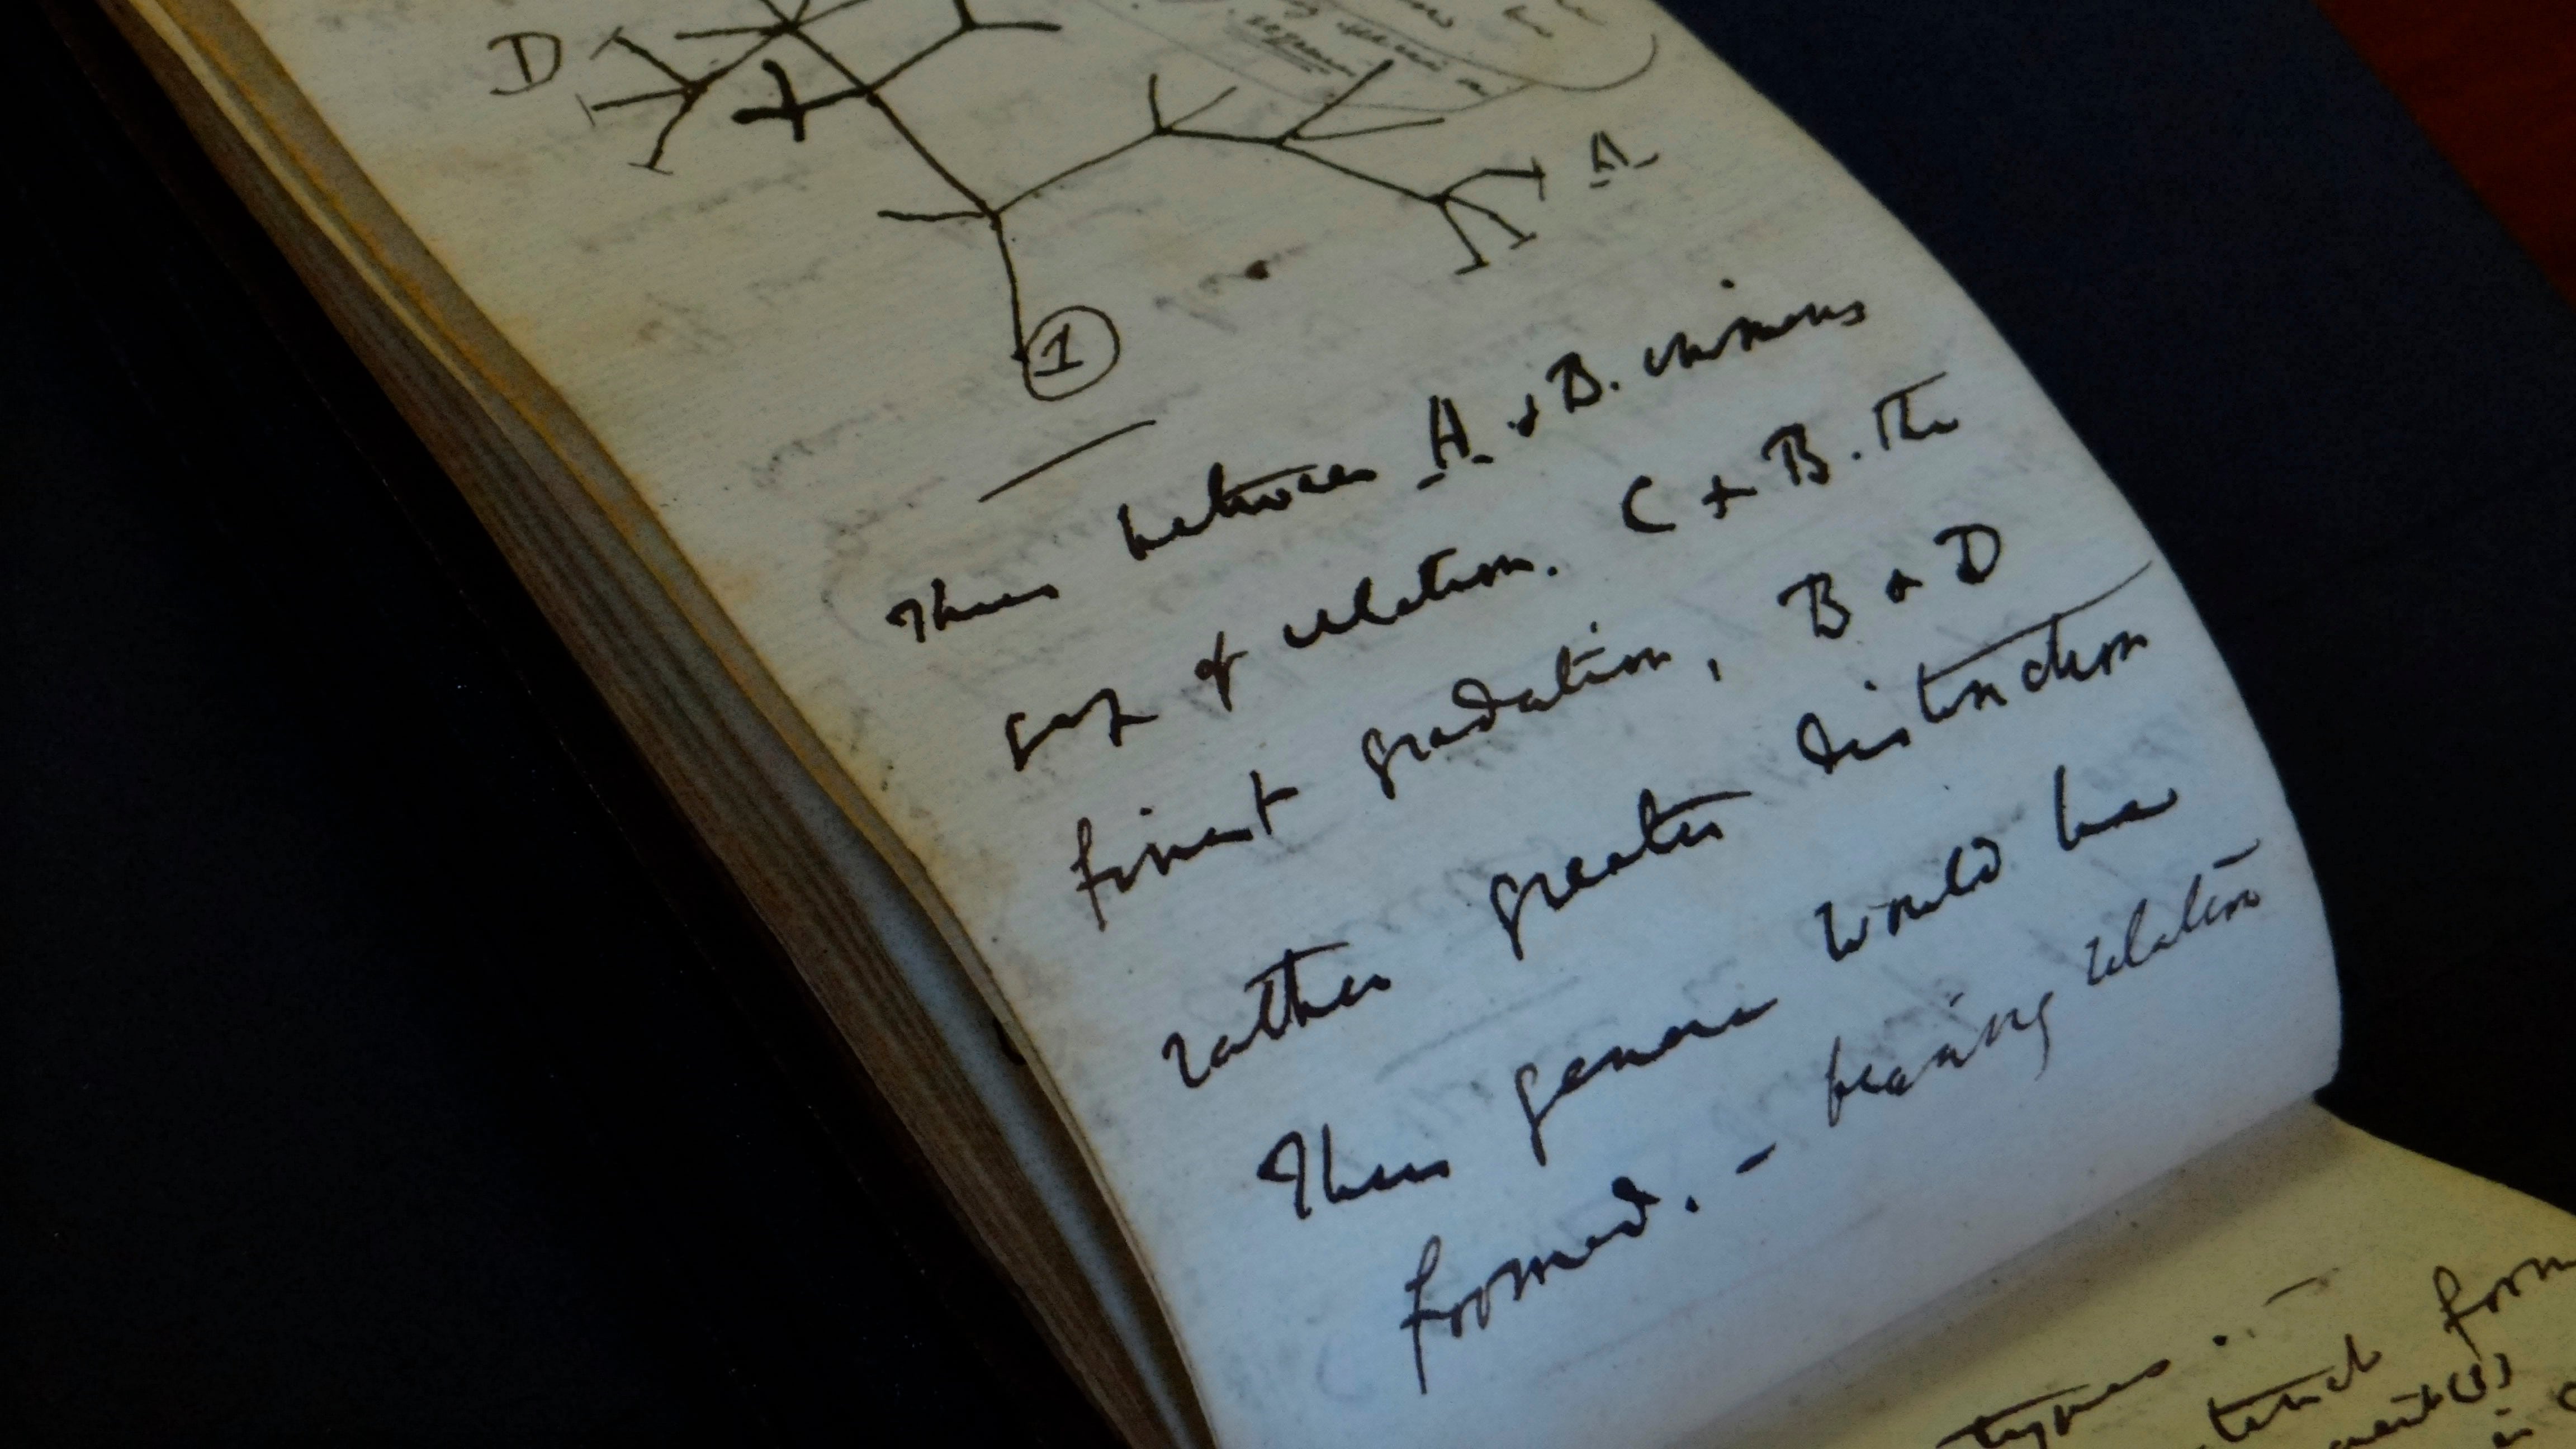 D
A
1
Thus between A & B. immens
gap of relation. C & B. The
finest gradation, B & D
rather greater distinction
Thus genera would be
formed. — bearing relation
types. —
form